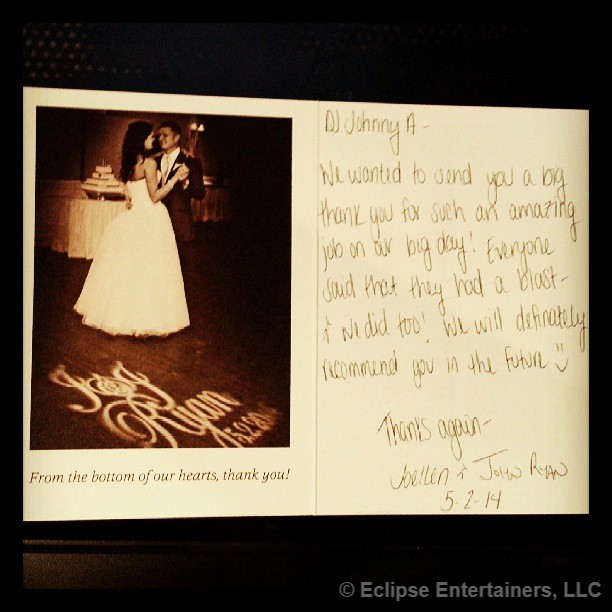 J & J
Ryan
5.2.20
From the bottom of our hearts, thank you!
DJ Johnny A -
We wanted to send you a big
thank you for such an amazing
job on our big day! Everyone
said that they had a blast -
& we did too! We will definately
recommend you in the future :)
Thanks again -
Joellen & John Ryan
5-2-14
© Eclipse Entertainers, LLC